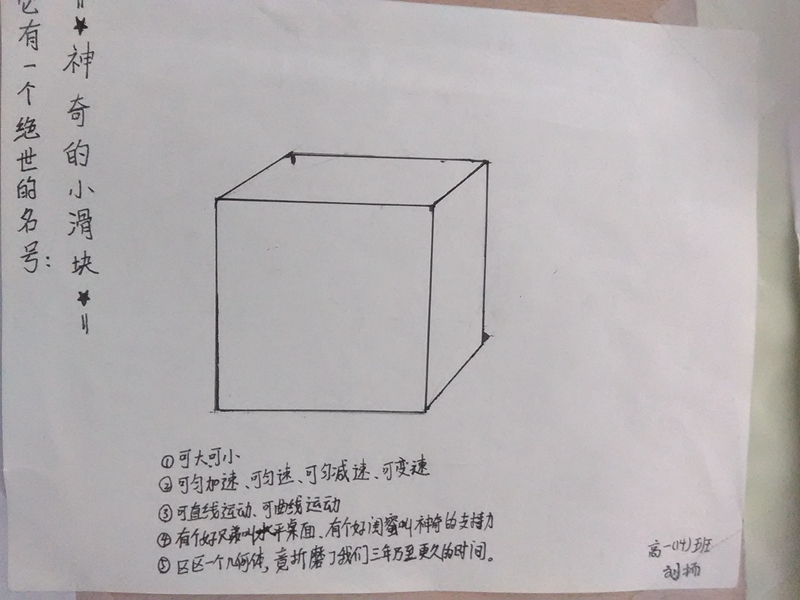 它有一个绝世的名号：
"★神奇的小滑块★"
①可大可小
②可匀加速、可匀速、可匀减速、可变速
③可直线运动、可曲线运动
④有个好兄弟叫水平桌面、有个好闺蜜叫神奇的支持力
⑤区区一个几何体，竟折磨了我们三年乃至更久的时间。
高一(14)班
刘扬